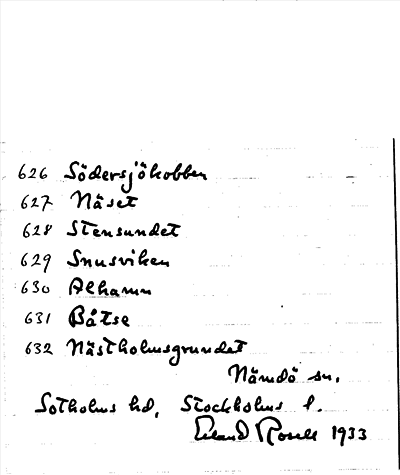 626 Södersjökobben
627 Näset
628 Stensundet
629 Snusviken
630 Alhamn
631 Båtse
632 Nästholmsgrundet
Nämdö sn.
Sotholms hd, Stockholms l.
Erland Rosell 1933